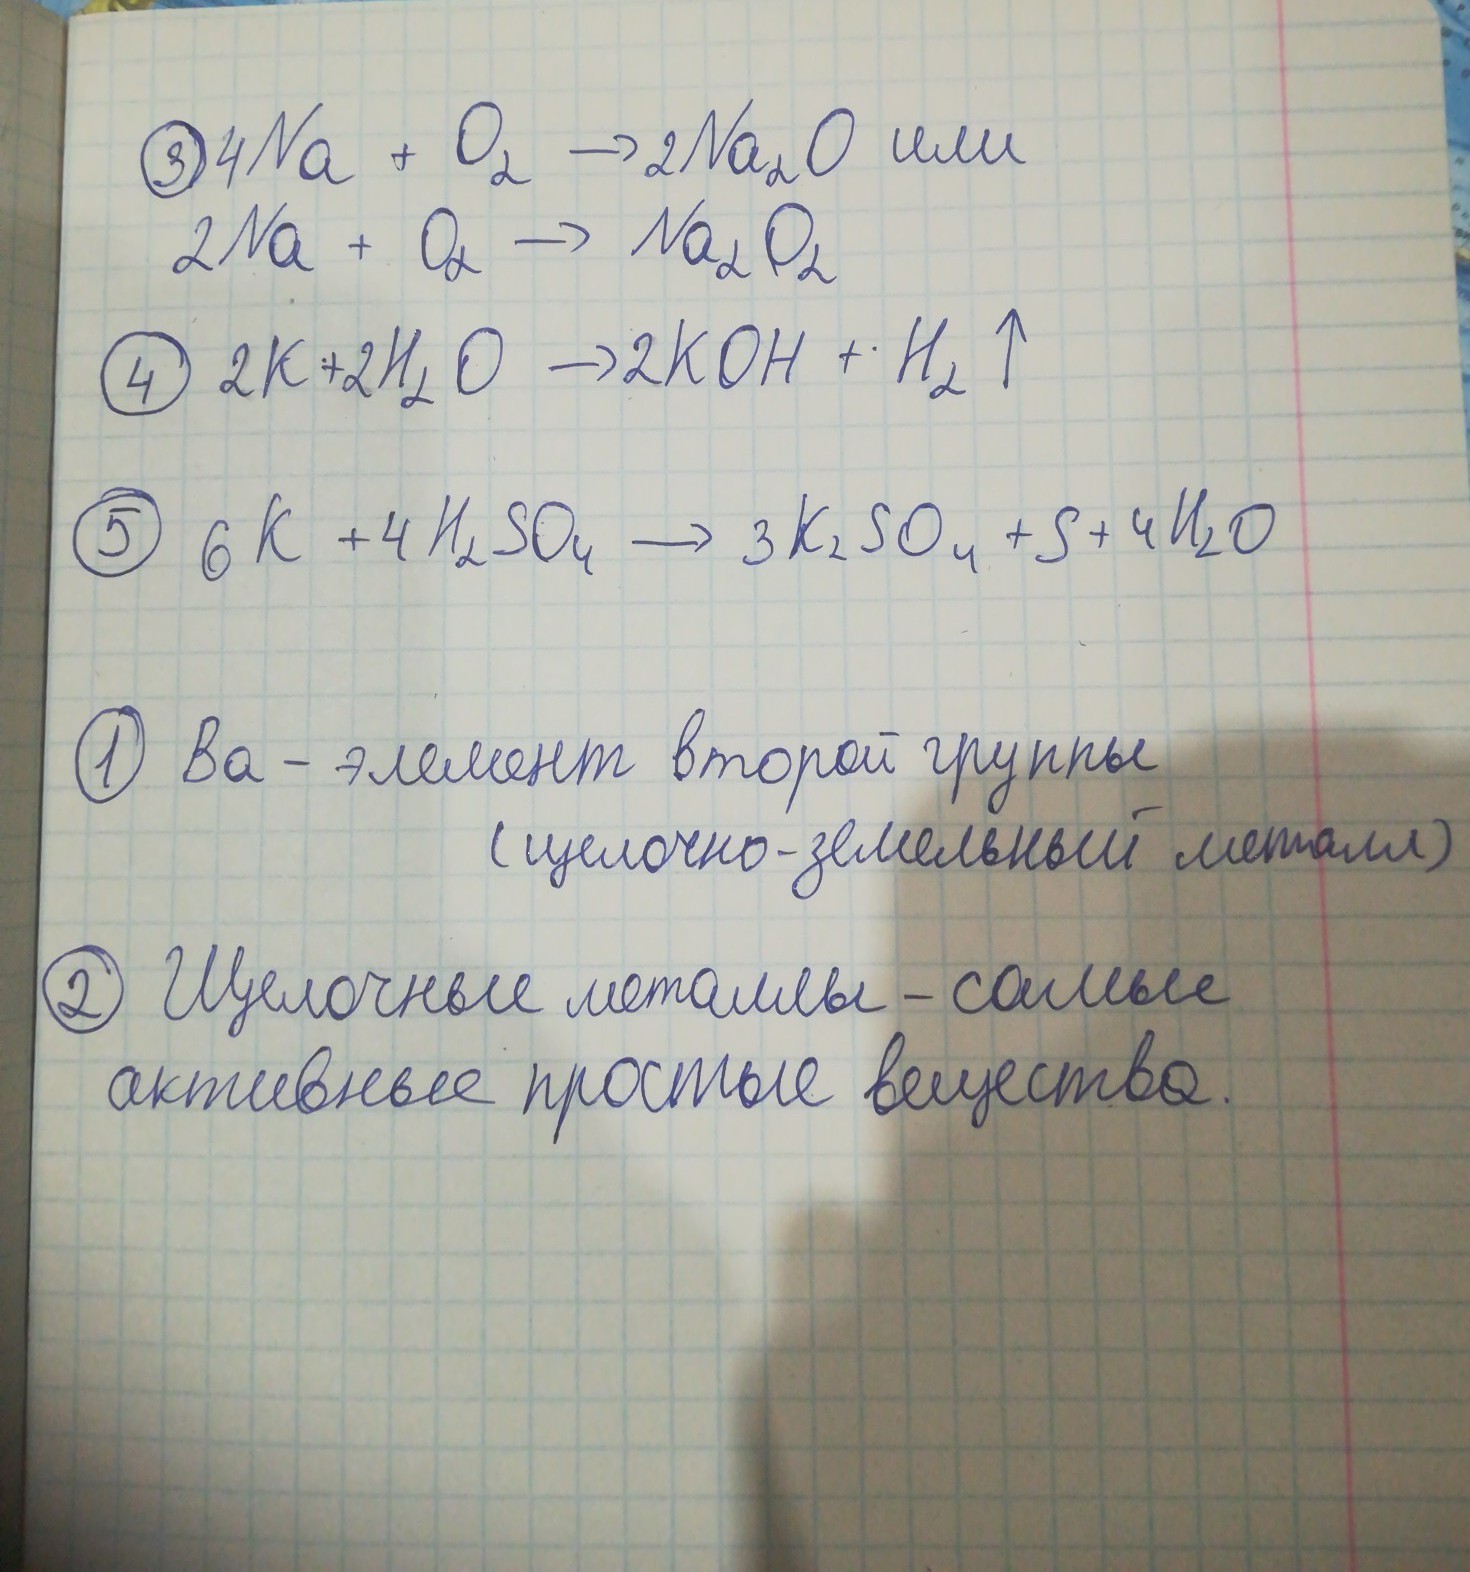 ③ 4Na + O₂ → 2Na₂O или
2Na + O₂ → Na₂O₂
④ 2K + 2H₂O → 2KOH + H₂ ↑
⑤ 6K + 4H₂SO₄ → 3K₂SO₄ + S + 4H₂O
① Ba – элемент второй группы
(щелочно-земельный металл)
② Щелочные металлы – самые
активные простые вещества.